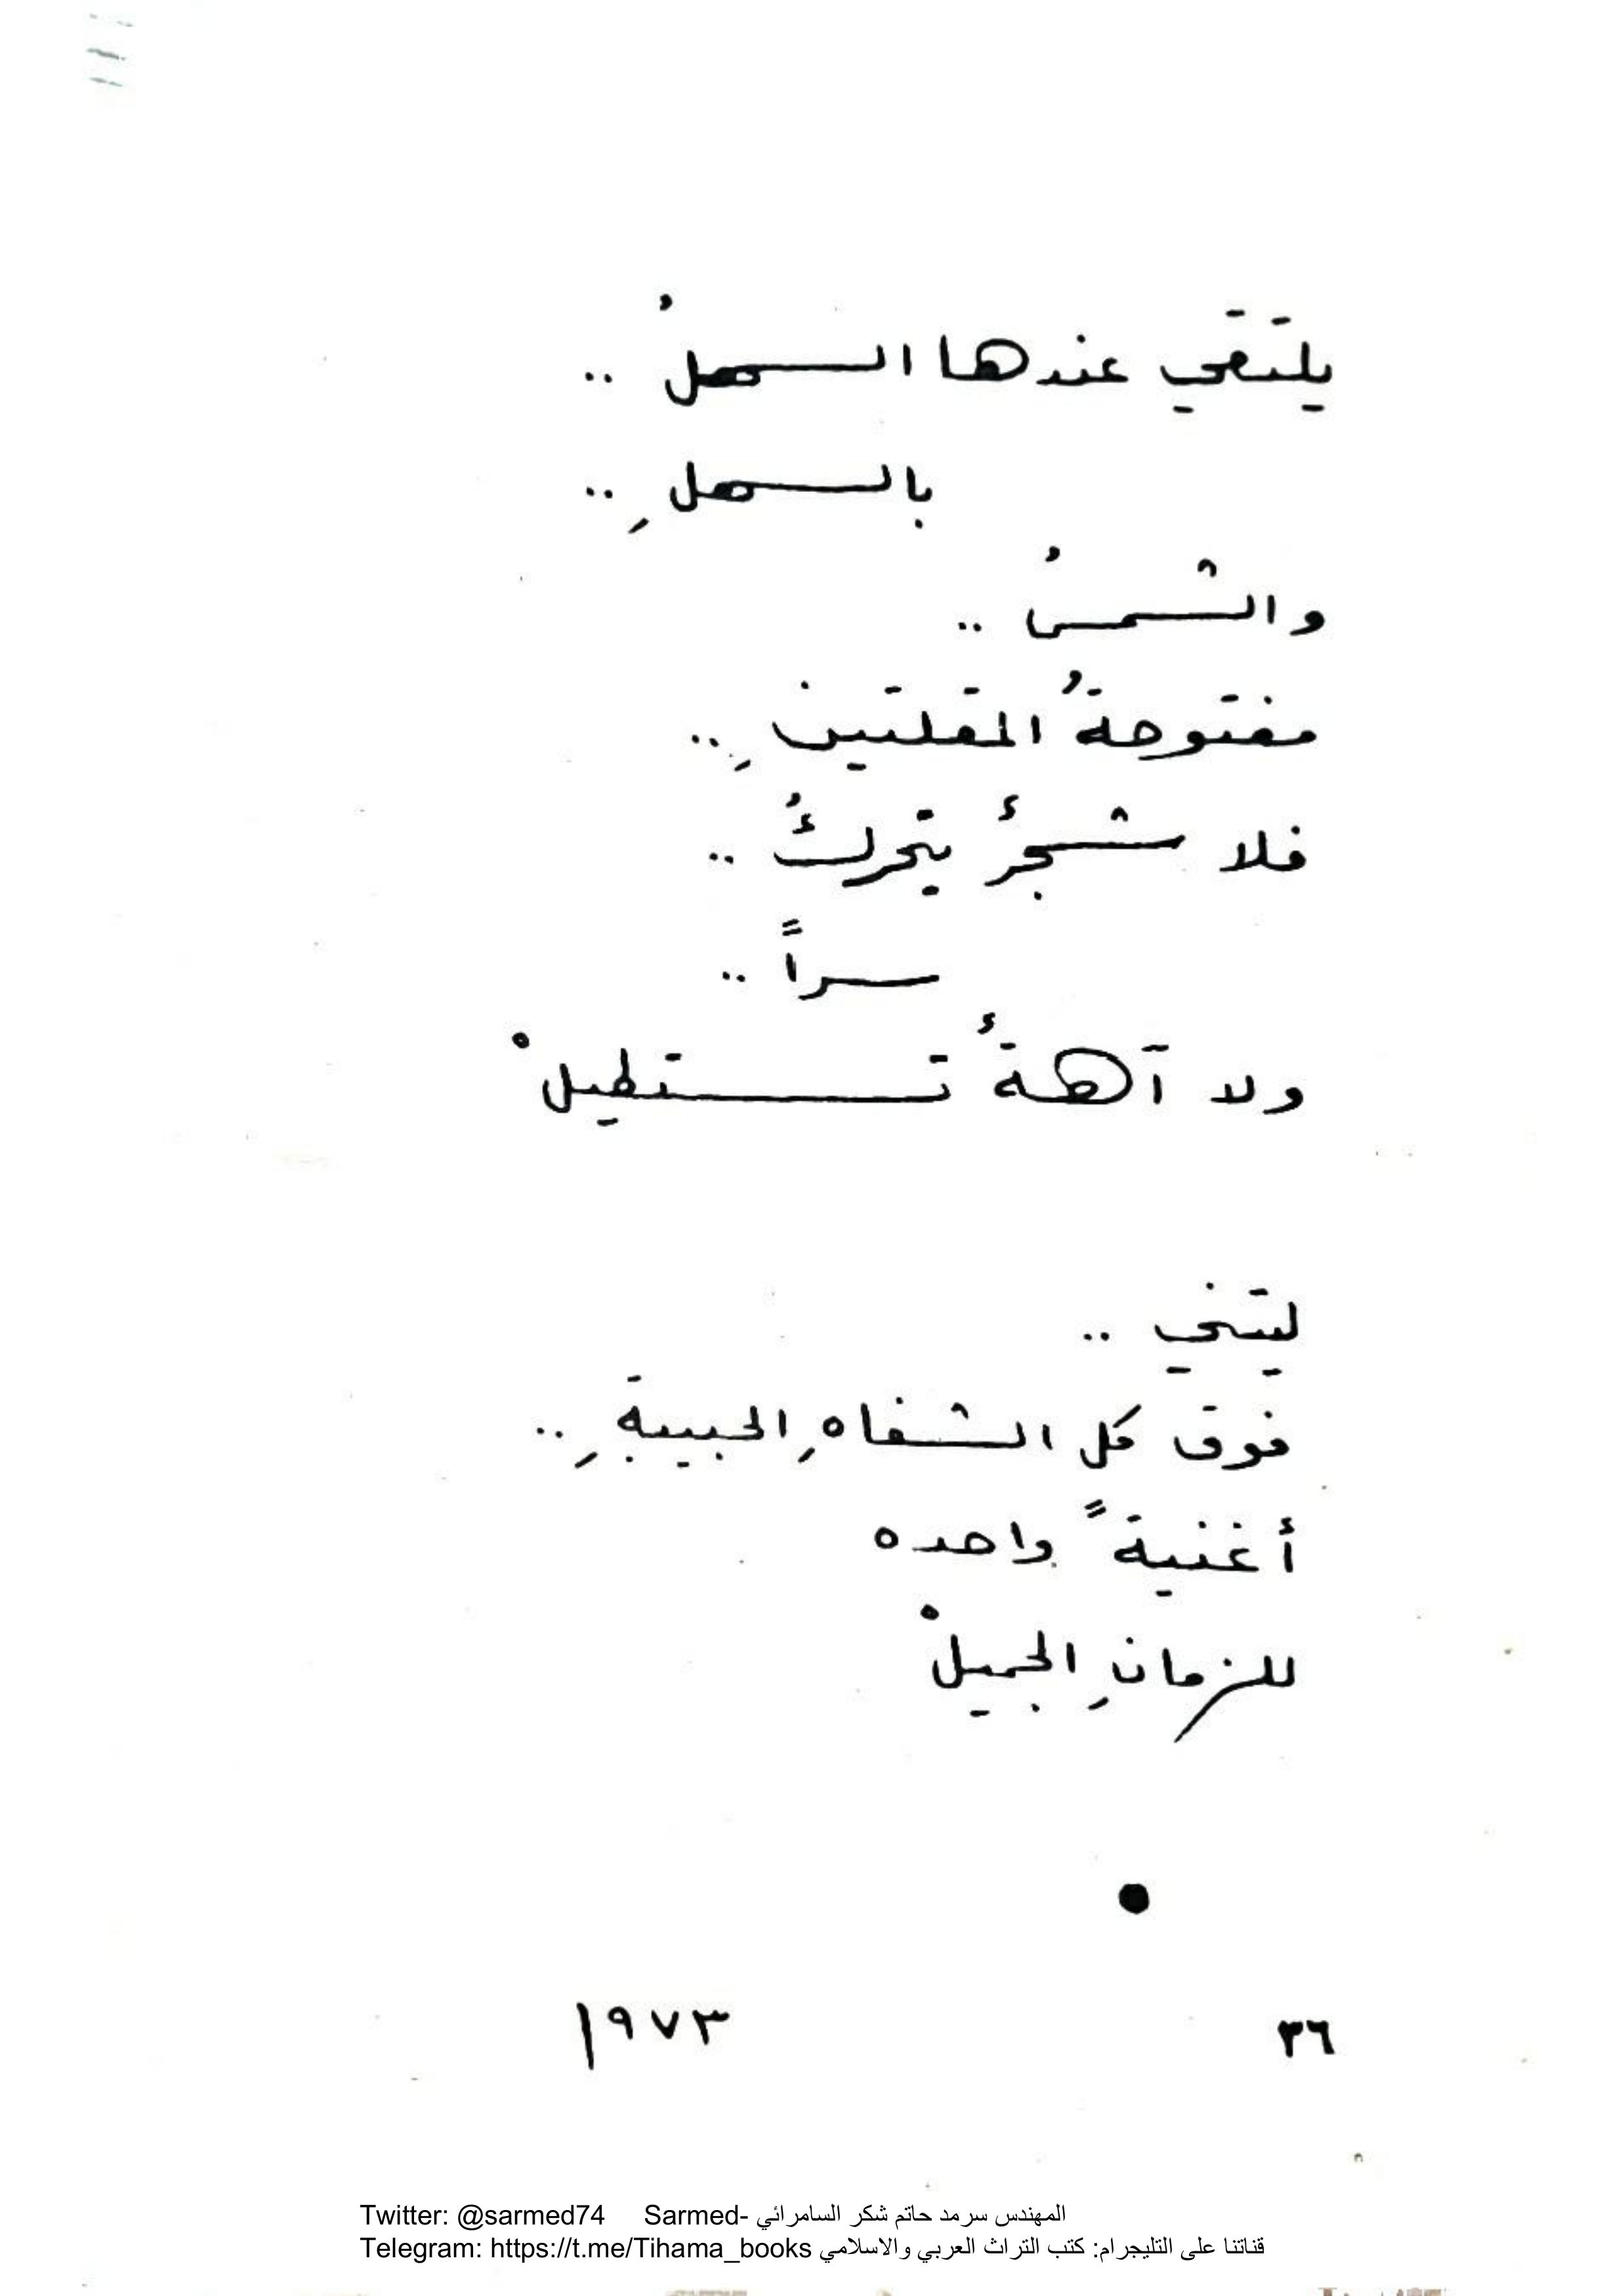 يلتقي عندها السهلُ ..
بالسهلِ ..
والشمسُ ..
مفتوحةُ المقلتينِ ..
فلا شجرٌ يتحركُ ..
سراً ..
ولا آهةٌ تستطيلْ
ليتني ..
فوق كل الشفاهِ الحبيبةِ ..
أغنيةً واحده
للزمانِ الجميلْ
١٩٧٣
٣٦
Twitter: @sarmed74 Sarmed- المهندس سرمد حاتم شكر السامرائي
Telegram: https://t.me/Tihama_books قناتنا على التليجرام: كتب التراث العربي والاسلامي